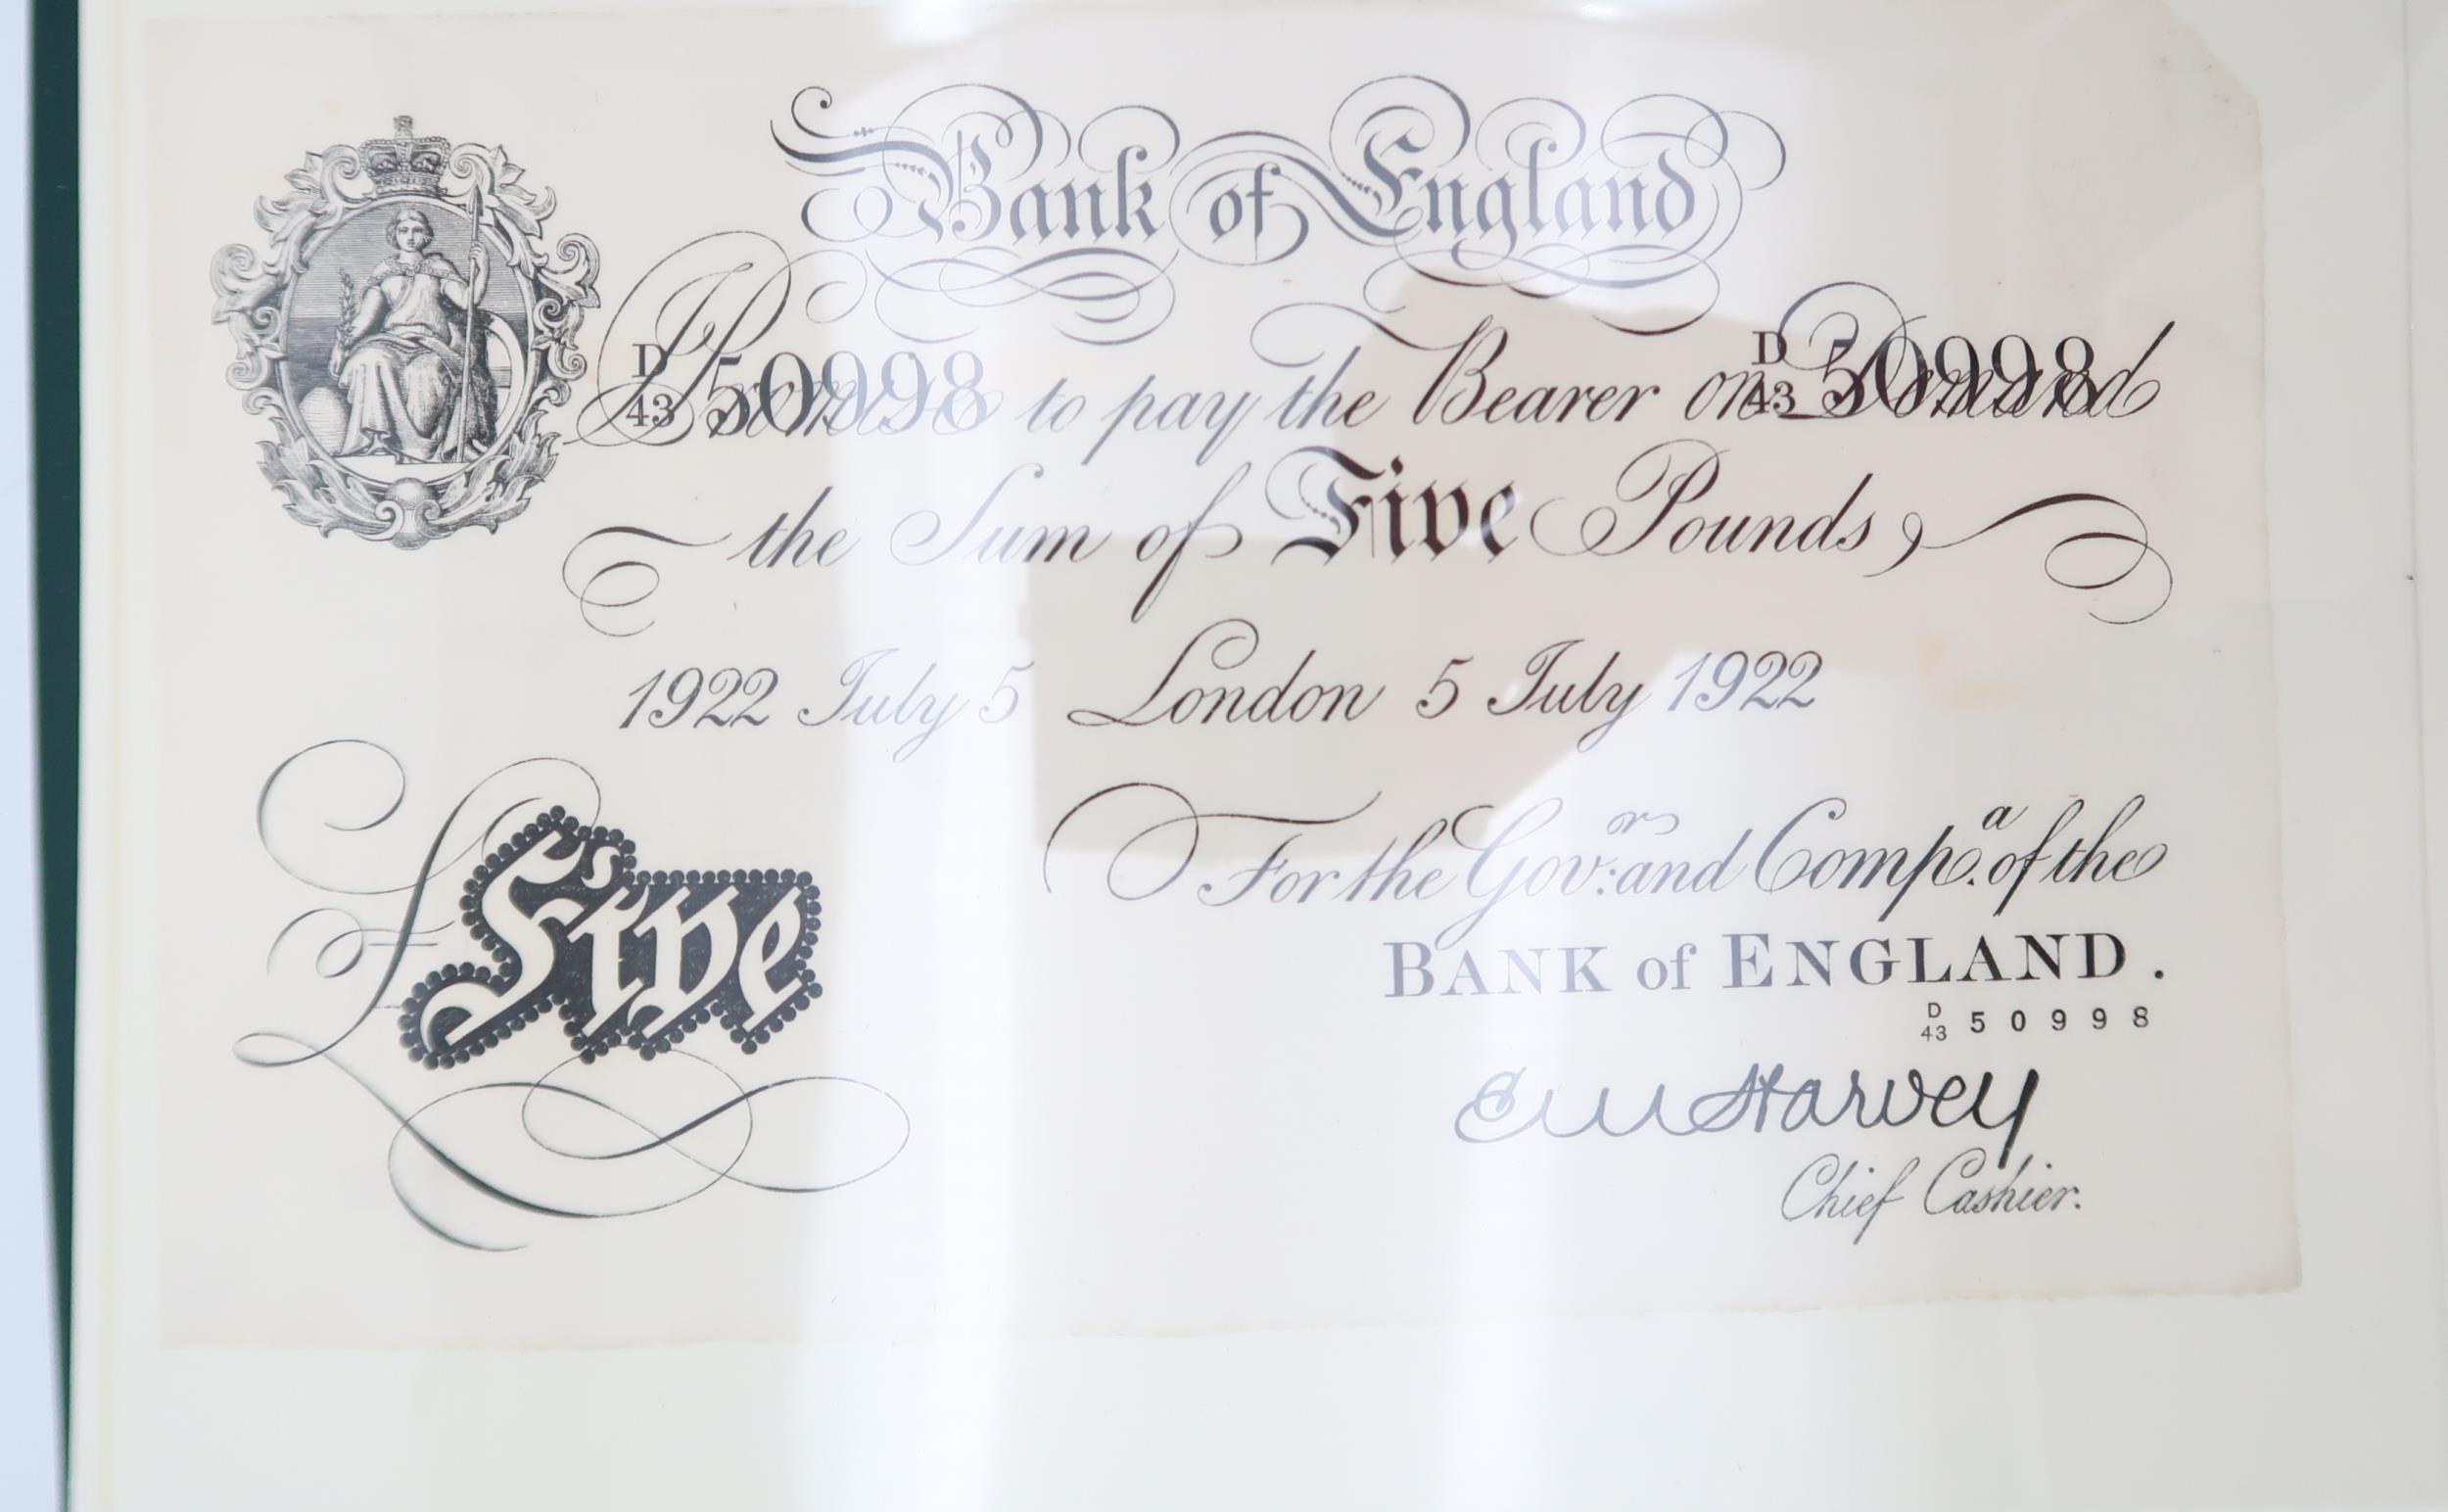 Bank of England
D/43 50998 D/43 50998
I Promise to pay the Bearer on Demand
the Sum of Five Pounds
1922 July 5 London 5 July 1922
For the Govʳˢ: and Compᵃ. of the
BANK of ENGLAND.
D/43 50998
£Five
E M Harvey
Chief Cashier.